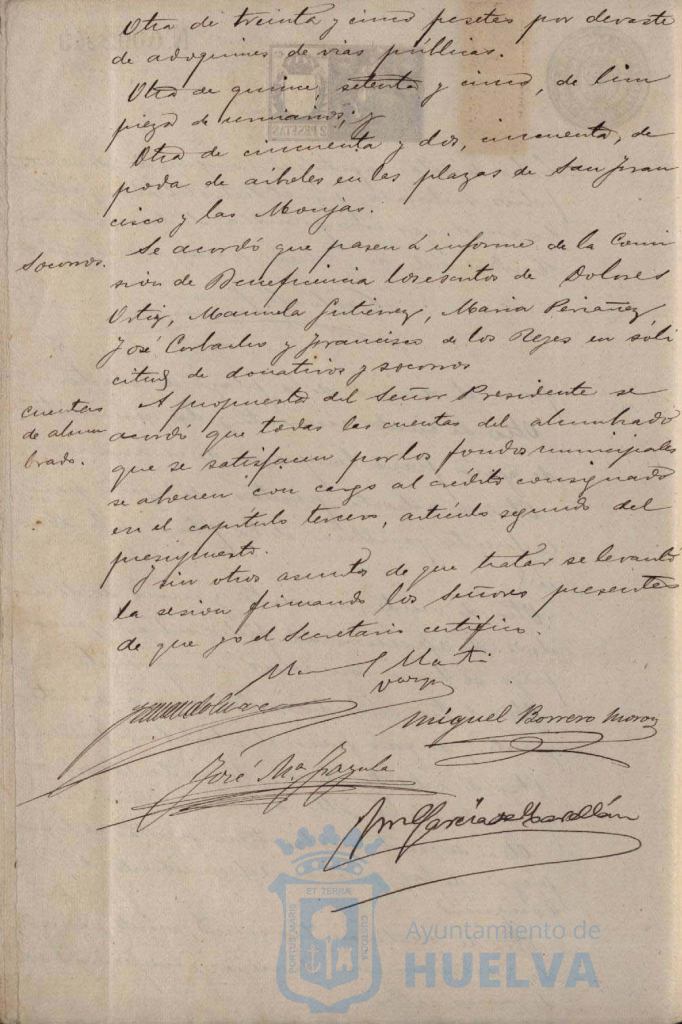 Otra de treinta y cinco pesetas por devaste
de adoquines de vias públicas.
Otra de quince, setenta y cinco, de lim
pieza de urinarios; y
Otra de cincuenta y dos, cincuenta, de
poda de arboles en las plazas de San Fran
cisco y las Monjas.
Socorros.
Se acordó que pasen á informe de la Comi
sión de Beneficencia los escritos de Dolores
Ortiz, Manuela Gutierrez, Maria Periañez
José Corbacho y Francisco de los Reyes en sóli
citud de donativos y socorros
cuentas
de alum
brado.
A propuesta del Señor Presidente se
acordó que todas las cuentas del alumbrado
que se satisfacen por los fondos municipales
se abonen con cargo al crédito consignado
en el capitulo tercero, artículo segundo del
presupuesto.
Y sin otros asuntos de que tratar se levantó
la sesion firmando los Señores presentes
de que yo el Secretario certifico.
Martin
Vazqz
Miguel Borrero Moron
José Mª Frazula
García
2 PESETAS
ET TERRÆ
PORTUS MARIS
CUSTODIA
Ayuntamiento de
HUELVA